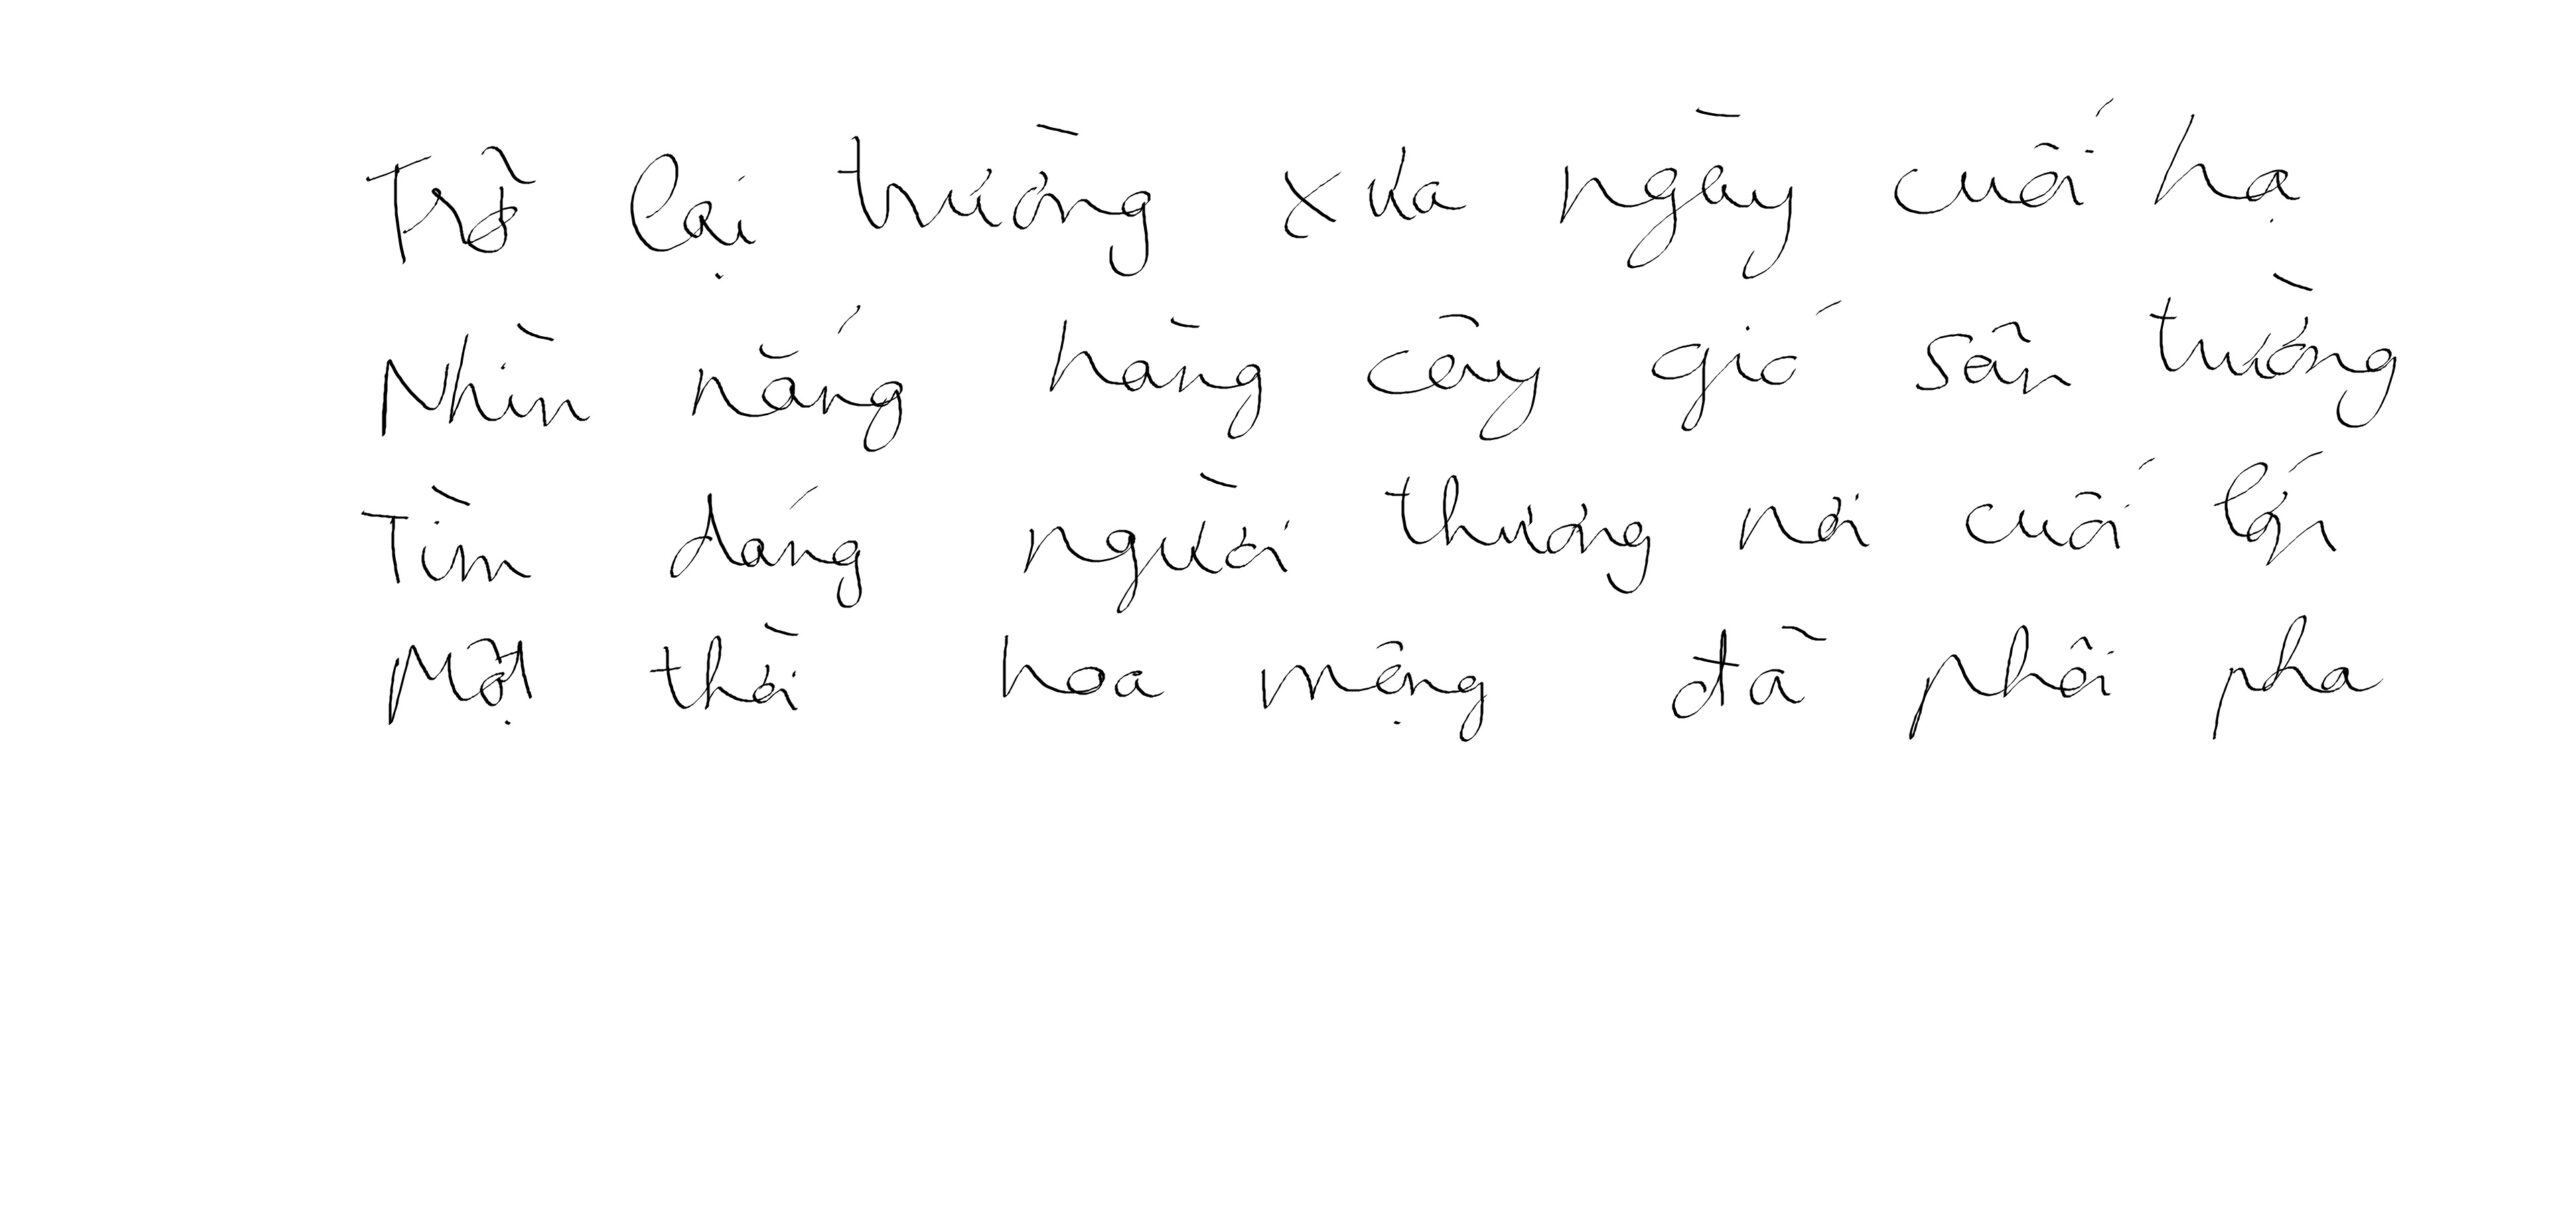 Trở lại trường xưa ngày cuối hạ
Nhìn nắng hàng cây gió sân trường
Tìm dáng người thương nơi cuối lớp
Một thời hoa mộng đã phôi pha